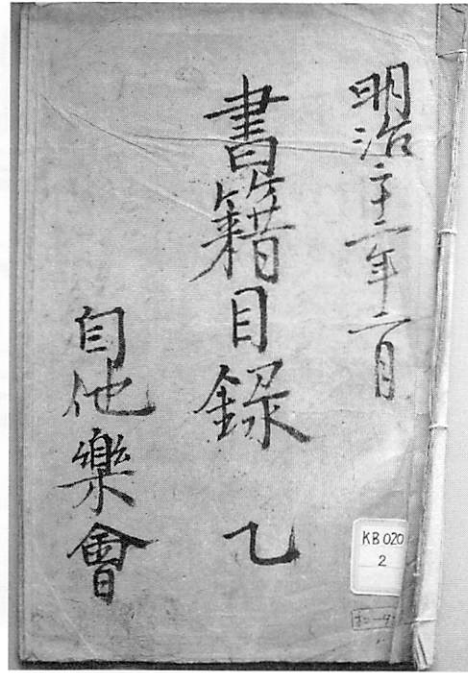 明治二十二年二月
書籍目録 乙
自他樂會
KB020
2